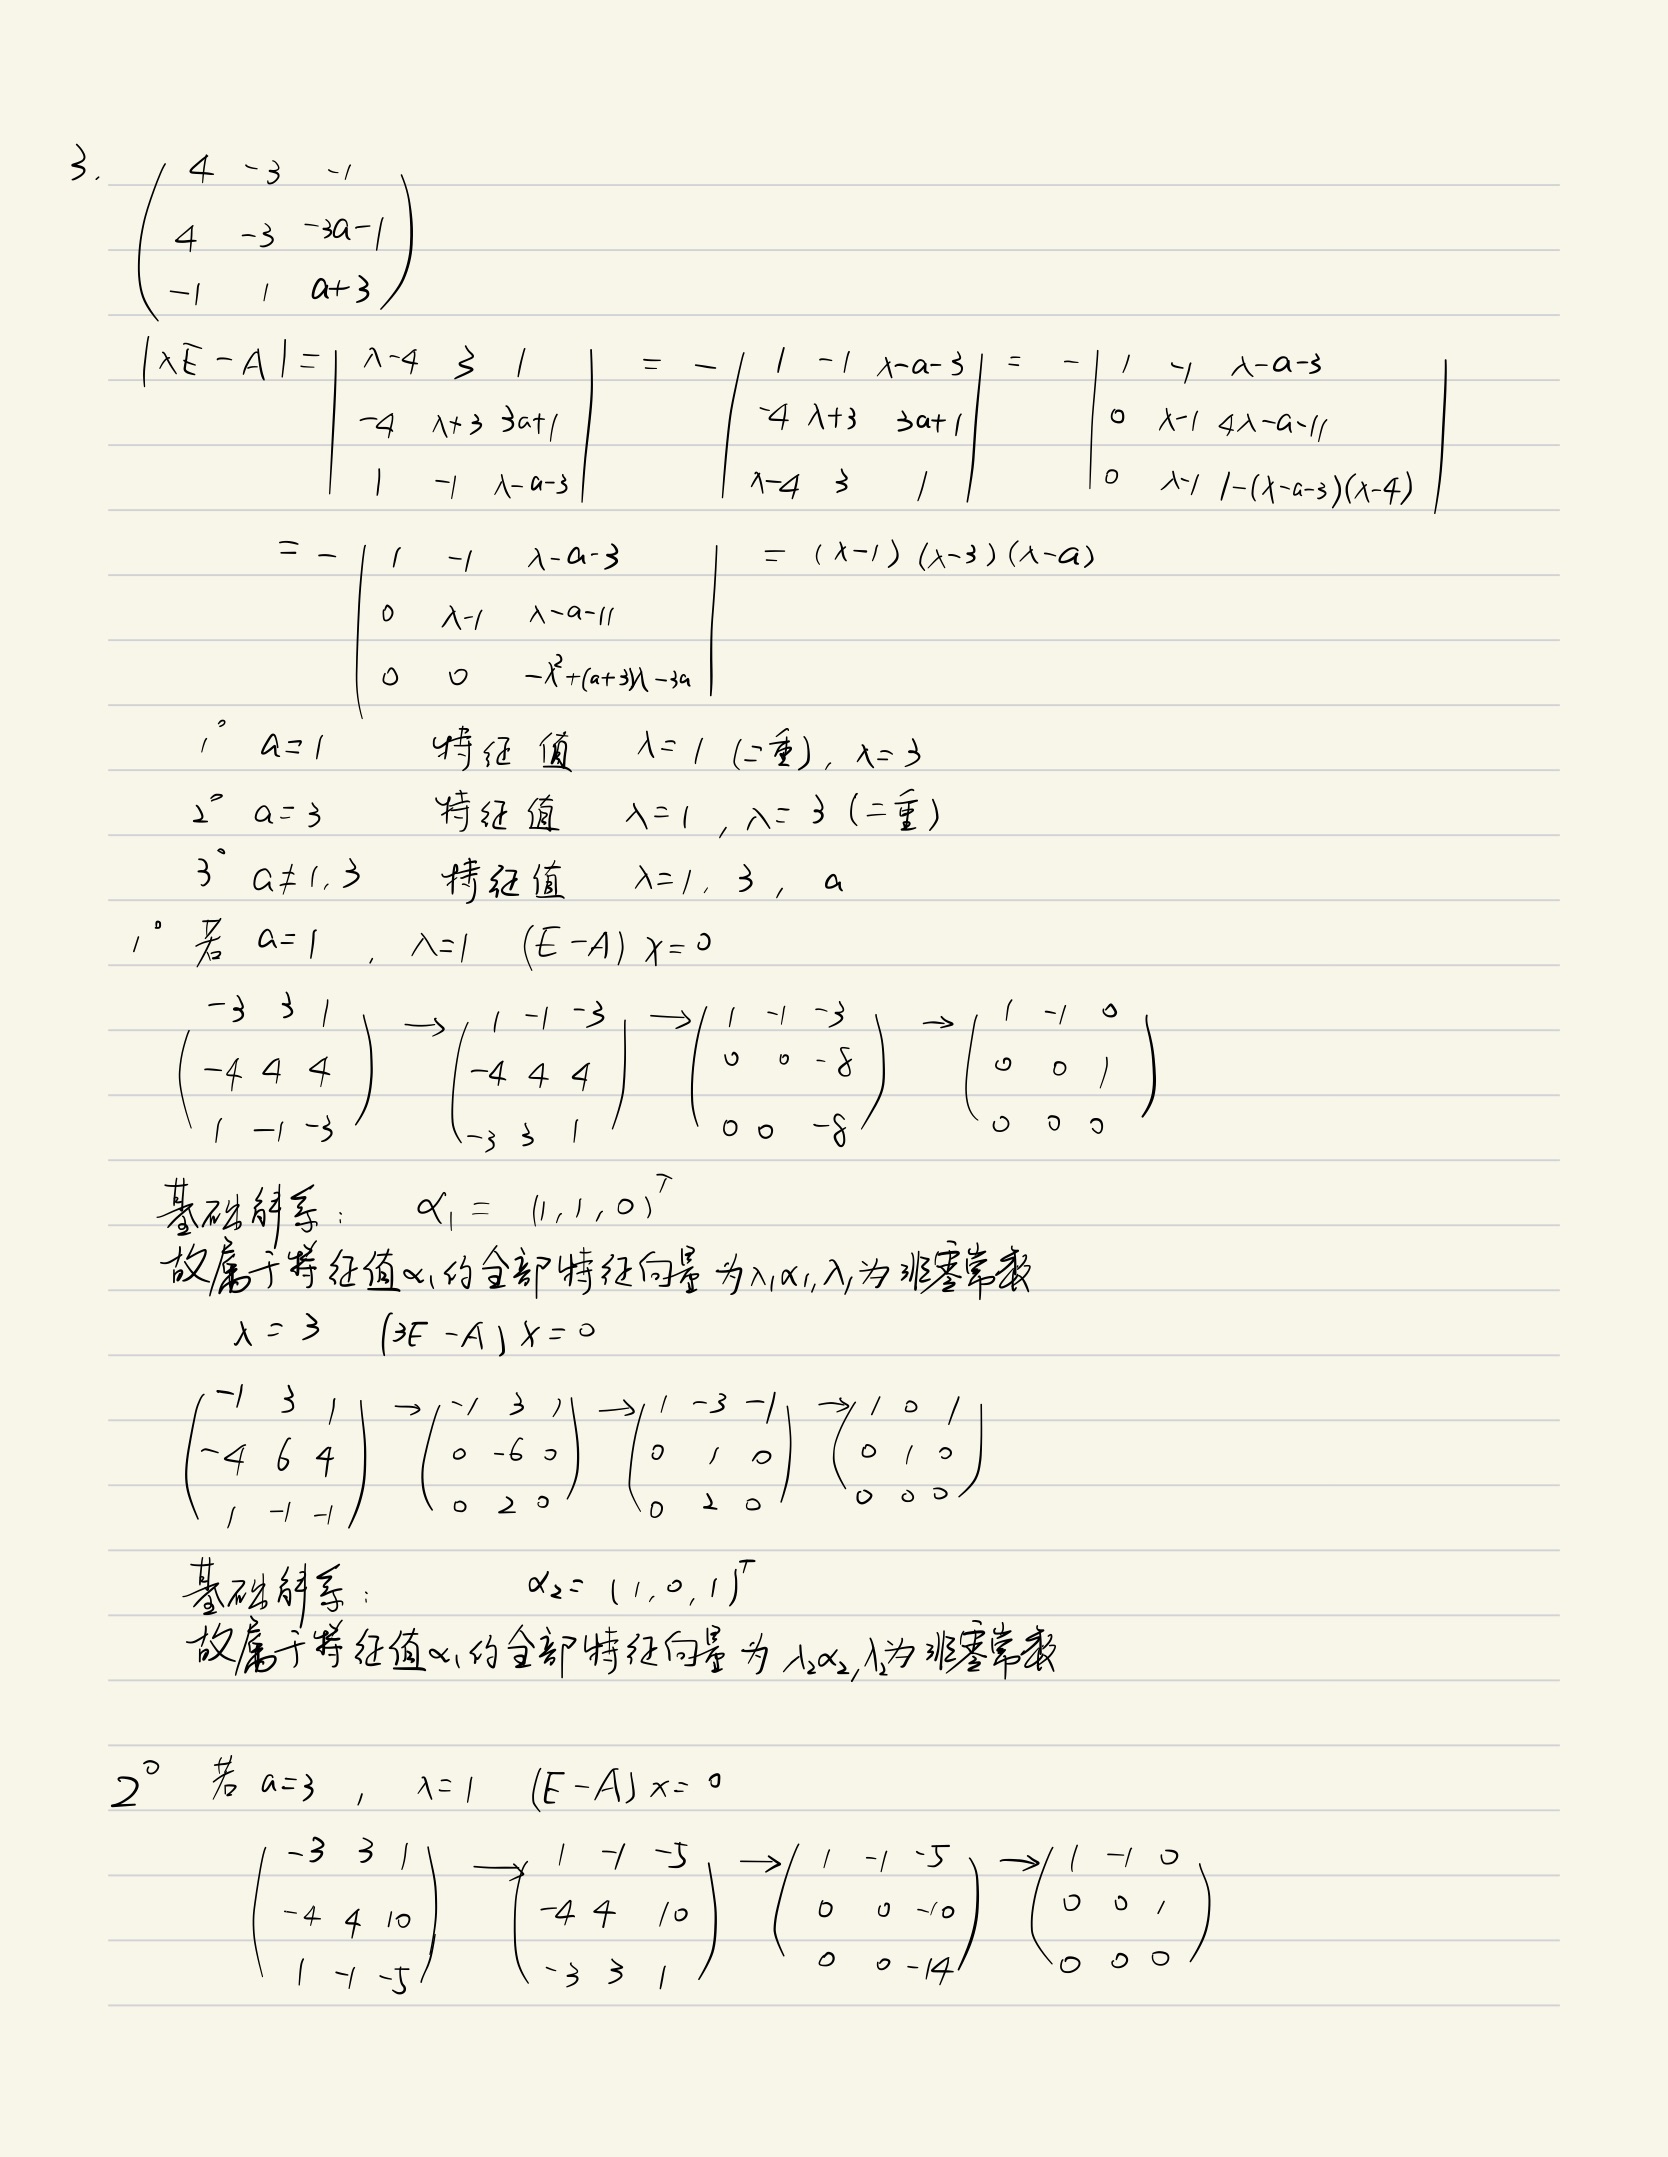 3.
( 4 -3 -1
4 -3 -3a-1
-1 1 a+3 )
|λE-A| = | λ-4 3 1 ; -4 λ+3 3a+1 ; 1 -1 λ-a-3 | = - | 1 -1 λ-a-3 ; -4 λ+3 3a+1 ; λ-4 3 1 | = - | 1 -1 λ-a-3 ; 0 λ-1 4λ-a-11 ; 0 λ-1 1-(λ-a-3)(λ-4) |
= - | 1 -1 λ-a-3 ; 0 λ-1 λ-a-11 ; 0 0 -λ²+(a+3)λ-3a | = (λ-1)(λ-3)(λ-a)
1° a=1 特征值 λ=1 (二重), λ=3
2° a=3 特征值 λ=1, λ=3 (二重)
3° a≠1,3 特征值 λ=1, 3, a
1° 若 a=1, λ=1 (E-A)x=0
( -3 3 1 ; -4 4 4 ; 1 -1 -3 ) → ( 1 -1 -3 ; -4 4 4 ; -3 3 1 ) → ( 1 -1 -3 ; 0 0 -8 ; 0 0 -8 ) → ( 1 -1 0 ; 0 0 1 ; 0 0 0 )
基础解系: α₁ = (1,1,0)ᵀ
故属于特征值α₁的全部特征向量为λ₁α₁,λ₁为非零常数
λ=3 (3E-A)x=0
( -1 3 1 ; -4 6 4 ; 1 -1 -1 ) → ( -1 3 1 ; 0 -6 0 ; 0 2 0 ) → ( 1 -3 -1 ; 0 1 0 ; 0 2 0 ) → ( 1 0 1 ; 0 1 0 ; 0 0 0 )
基础解系: α₂ = (1,0,1)ᵀ
故属于特征值α₁的全部特征向量为λ₂α₂,λ₂为非零常数
2° 若 a=3, λ=1 (E-A)x=0
( -3 3 1 ; -4 4 10 ; 1 -1 -5 ) → ( 1 -1 -5 ; -4 4 10 ; -3 3 1 ) → ( 1 -1 -5 ; 0 0 -10 ; 0 0 -14 ) → ( 1 -1 0 ; 0 0 1 ; 0 0 0 )